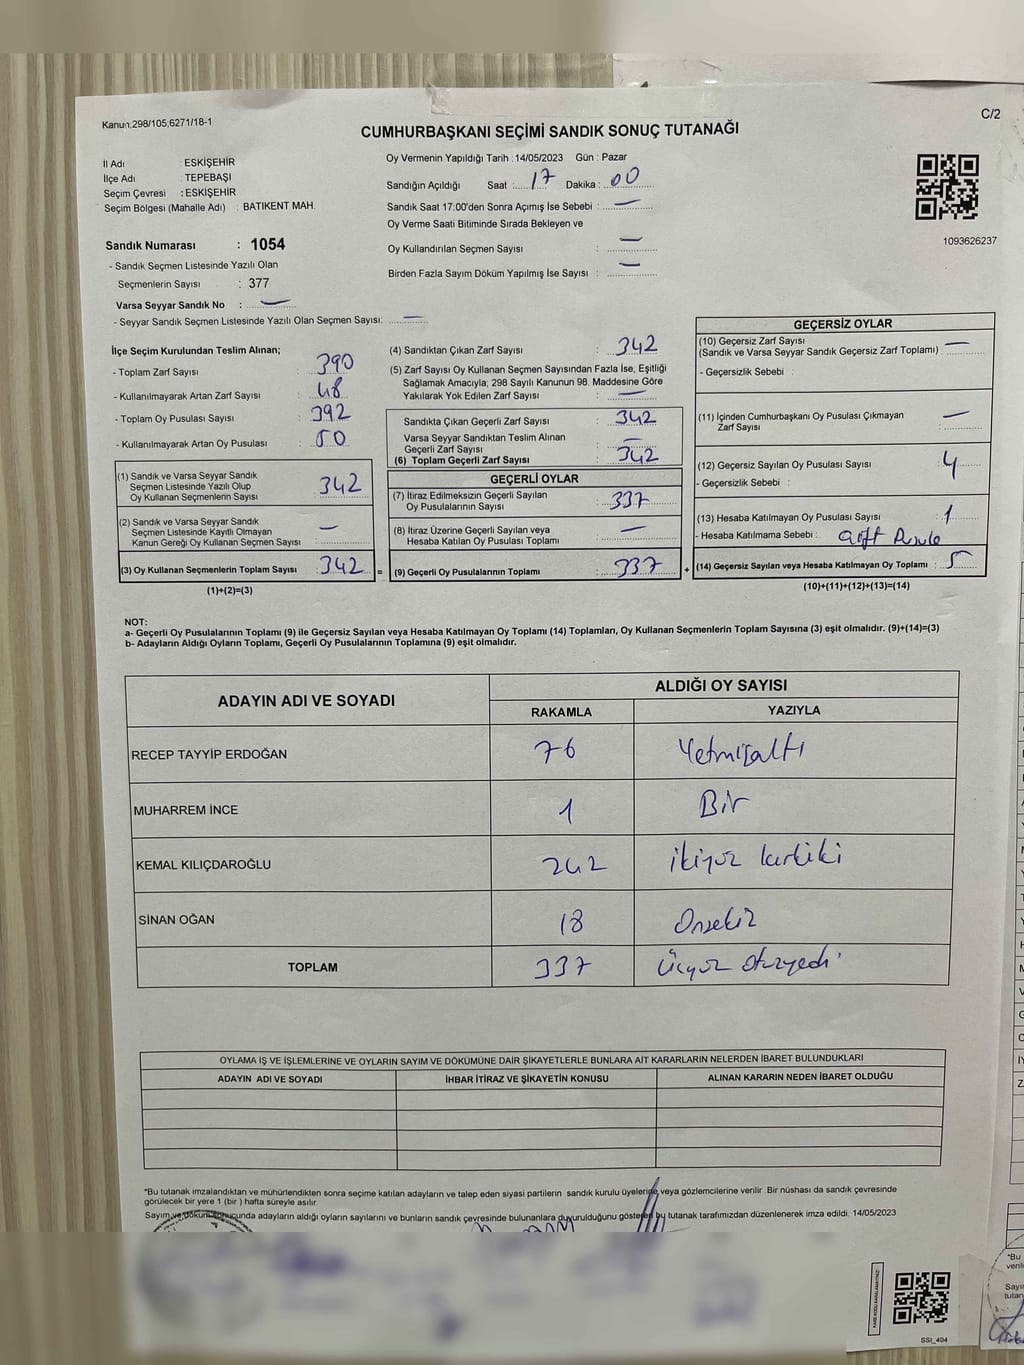 Kanun:298/105,6271/18-1
C/2
CUMHURBAŞKANI SEÇİMİ SANDIK SONUÇ TUTANAĞI
İl Adı : ESKİŞEHİR
İlçe Adı : TEPEBAŞI
Seçim Çevresi : ESKİŞEHİR
Seçim Bölgesi (Mahalle Adı) : BATIKENT MAH.
Oy Vermenin Yapıldığı Tarih : 14/05/2023 Gün : Pazar
Sandığın Açıldığı Saat : 17 Dakika : 00
Sandık Saat 17:00'den Sonra Açımış İse Sebebi : —
Oy Verme Saati Bitiminde Sırada Bekleyen ve
Oy Kullandırılan Seçmen Sayısı : —
Birden Fazla Sayım Döküm Yapılmış İse Sayısı : —
1093626237
Sandık Numarası : 1054
- Sandık Seçmen Listesinde Yazılı Olan
Seçmenlerin Sayısı : 377
Varsa Seyyar Sandık No : —
- Seyyar Sandık Seçmen Listesinde Yazılı Olan Seçmen Sayısı: —
İlçe Seçim Kurulundan Teslim Alınan;
- Toplam Zarf Sayısı : 390
- Kullanılmayarak Artan Zarf Sayısı : 48
- Toplam Oy Pusulası Sayısı : 392
- Kullanılmayarak Artan Oy Pusulası : 50
(1) Sandık ve Varsa Seyyar Sandık
Seçmen Listesinde Yazılı Olup
Oy Kullanan Seçmenlerin Sayısı 342
(2) Sandık ve Varsa Seyyar Sandık
Seçmen Listesinde Kayıtlı Olmayan
Kanun Gereği Oy Kullanan Seçmen Sayısı —
(3) Oy Kullanan Seçmenlerin Toplam Sayısı 342 =
(1)+(2)=(3)
(4) Sandıktan Çıkan Zarf Sayısı : 342
(5) Zarf Sayısı Oy Kullanan Seçmen Sayısından Fazla İse, Eşitliği
Sağlamak Amacıyla; 298 Sayılı Kanunun 98. Maddesine Göre
Yakılarak Yok Edilen Zarf Sayısı : —
Sandıkta Çıkan Geçerli Zarf Sayısı : 342
Varsa Seyyar Sandıktan Teslim Alınan
Geçerli Zarf Sayısı : —
(6) Toplam Geçerli Zarf Sayısı : 342
GEÇERLİ OYLAR
(7) İtiraz Edilmeksizin Geçerli Sayılan
Oy Pusulalarının Sayısı : 337
(8) İtiraz Üzerine Geçerli Sayılan veya
Hesaba Katılan Oy Pusulası Toplamı : —
(9) Geçerli Oy Pusulalarının Toplamı : 337 +
GEÇERSİZ OYLAR
(10) Geçersiz Zarf Sayısı
(Sandık ve Varsa Seyyar Sandık Geçersiz Zarf Toplamı) : —
- Geçersizlik Sebebi :
(11) İçinden Cumhurbaşkanı Oy Pusulası Çıkmayan
Zarf Sayısı : —
(12) Geçersiz Sayılan Oy Pusulası Sayısı : 4
- Geçersizlik Sebebi :
(13) Hesaba Katılmayan Oy Pusulası Sayısı : 1
- Hesaba Katılmama Sebebi : Çift Pusula
(14) Geçersiz Sayılan veya Hesaba Katılmayan Oy Toplamı : 5
(10)+(11)+(12)+(13)=(14)
NOT:
a- Geçerli Oy Pusulalarının Toplamı (9) ile Geçersiz Sayılan veya Hesaba Katılmayan Oy Toplamı (14) Toplamları, Oy Kullanan Seçmenlerin Toplam Sayısına (3) eşit olmalıdır. (9)+(14)=(3)
b- Adayların Aldığı Oyların Toplamı, Geçerli Oy Pusulalarının Toplamına (9) eşit olmalıdır.
ADAYIN ADI VE SOYADI ALDIĞI OY SAYISI
RAKAMLA YAZIYLA
RECEP TAYYİP ERDOĞAN 76 Yetmişaltı
MUHARREM İNCE 1 Bir
KEMAL KILIÇDAROĞLU 242 İkiyüz kırkiki
SİNAN OĞAN 18 Onsekiz
TOPLAM 337 Üçyüz otuzyedi
OYLAMA İŞ VE İŞLEMLERİNE VE OYLARIN SAYIM VE DÖKÜMÜNE DAİR ŞİKAYETLERLE BUNLARA AİT KARARLARIN NELERDEN İBARET BULUNDUKLARI
ADAYIN ADI VE SOYADI İHBAR İTİRAZ VE ŞİKAYETİN KONUSU ALINAN KARARIN NEDEN İBARET OLDUĞU
*Bu tutanak imzalandıktan ve mühürlendikten sonra seçime katılan adayların ve talep eden siyasi partilerin sandık kurulu üyelerine veya gözlemcilerine verilir. Bir nüshası da sandık çevresinde
görülecek bir yere 1 (bir ) hafta süreyle asılır.
Sayım ve döküm sonucunda adayların aldığı oyların sayılarını ve bunların sandık çevresinde bulunanlara duyurulduğunu gösteren bu tutanak tarafımızdan düzenlenerek imza edildi. 14/05/2023
SSI_404